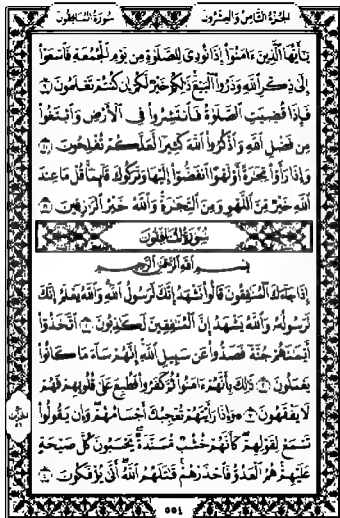 الجزء الثامن والعشرون
سورة المنافقون
يَٰٓأَيُّهَا ٱلَّذِينَ ءَامَنُوٓا۟ إِذَا نُودِىَ لِلصَّلَوٰةِ مِن يَوْمِ ٱلْجُمُعَةِ فَٱسْعَوْا۟
إِلَىٰ ذِكْرِ ٱللَّهِ وَذَرُوا۟ ٱلْبَيْعَ ۚ ذَٰلِكُمْ خَيْرٌ لَّكُمْ إِن كُنتُمْ تَعْلَمُونَ ٩
فَإِذَا قُضِيَتِ ٱلصَّلَوٰةُ فَٱنتَشِرُوا۟ فِى ٱلْأَرْضِ وَٱبْتَغُوا۟
مِن فَضْلِ ٱللَّهِ وَٱذْكُرُوا۟ ٱللَّهَ كَثِيرًا لَّعَلَّكُمْ تُفْلِحُونَ ١٠
وَإِذَا رَأَوْا۟ تِجَٰرَةً أَوْ لَهْوًا ٱنفَضُّوٓا۟ إِلَيْهَا وَتَرَكُوكَ قَآئِمًا ۚ قُلْ مَا عِندَ
ٱللَّهِ خَيْرٌ مِّنَ ٱللَّهْوِ وَمِنَ ٱلتِّجَٰرَةِ ۚ وَٱللَّهُ خَيْرُ ٱلرَّٰزِقِينَ ١١
سورة المنافقون
بِسْمِ ٱللَّهِ ٱلرَّحْمَٰنِ ٱلرَّحِيمِ
إِذَا جَآءَكَ ٱلْمُنَٰفِقُونَ قَالُوا۟ نَشْهَدُ إِنَّكَ لَرَسُولُ ٱللَّهِ ۗ وَٱللَّهُ يَعْلَمُ إِنَّكَ
لَرَسُولُهُۥ وَٱللَّهُ يَشْهَدُ إِنَّ ٱلْمُنَٰفِقِينَ لَكَٰذِبُونَ ١ ٱتَّخَذُوٓا۟
أَيْمَٰنَهُمْ جُنَّةً فَصَدُّوا۟ عَن سَبِيلِ ٱللَّهِ ۚ إِنَّهُمْ سَآءَ مَا كَانُوا۟
يَعْمَلُونَ ٢ ذَٰلِكَ بِأَنَّهُمْ ءَامَنُوا۟ ثُمَّ كَفَرُوا۟ فَطُبِعَ عَلَىٰ قُلُوبِهِمْ فَهُمْ
لَا يَفْقَهُونَ ٣ ۞ وَإِذَا رَأَيْتَهُمْ تُعْجِبُكَ أَجْسَامُهُمْ ۖ وَإِن يَقُولُوا۟
تَسْمَعْ لِقَوْلِهِمْ ۖ كَأَنَّهُمْ خُشُبٌ مُّسَنَّدَةٌ ۖ يَحْسَبُونَ كُلَّ صَيْحَةٍ
عَلَيْهِمْ ۚ هُمُ ٱلْعَدُوُّ فَٱحْذَرْهُمْ ۚ قَٰتَلَهُمُ ٱللَّهُ ۖ أَنَّىٰ يُؤْفَكُونَ ٤
٥٥٤